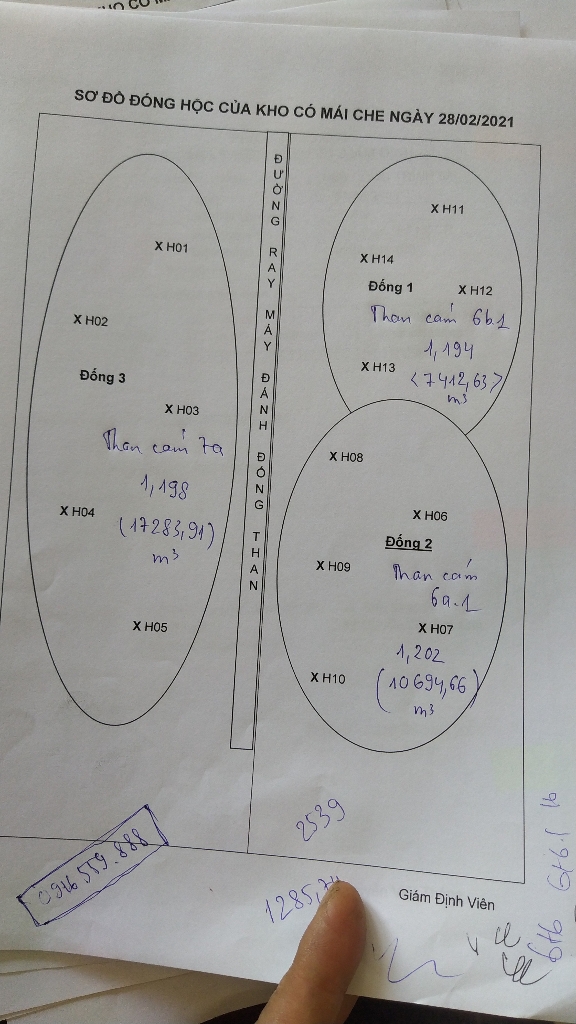 SƠ ĐỒ ĐÓNG HỌC CỦA KHO CÓ MÁI CHE NGÀY 28/02/2021
X H01
X H02
Đống 3
X H03
Than cám 7a
1,198
X H04
(17283,91)
m³
X H05
ĐƯỜNG RAY MÁY ĐÁNH ĐỐNG THAN
X H11
X H14
Đống 1
X H12
Than cám 6b.1
1,194
X H13
<7412,63>
m³
X H08
X H06
Đống 2
X H09
Than cám
6a.1
X H07
1,202
X H10
(10694,66)
m³
2539
Giám Định Viên